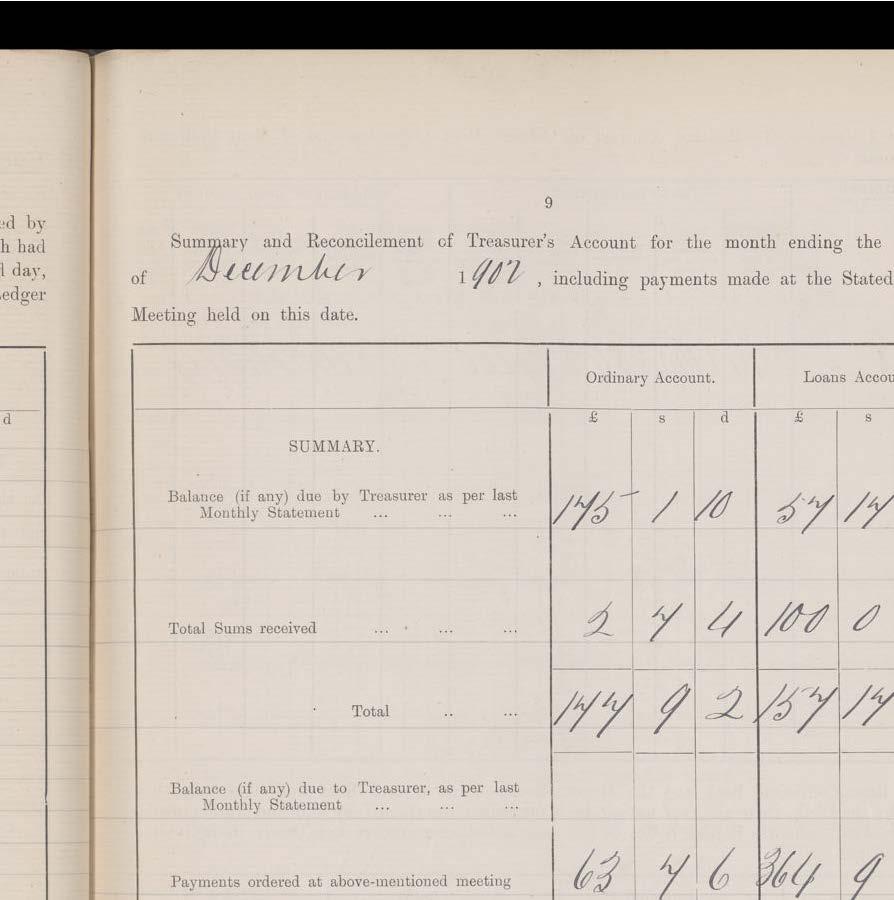 ed by
h had
l day,
edger
d
9
Summary and Reconcilement of Treasurer's Account for the month ending the
of December 1902, including payments made at the Stated
Meeting held on this date.
Ordinary Account. Loans Accou
£ s d £ s
SUMMARY.
Balance (if any) due by Treasurer as per last
Monthly Statement ... ... ... 175 1 10 57 17
Total Sums received ... ... ... 2 7 4 100 0
Total .. ... 177 9 2 157 17
Balance (if any) due to Treasurer, as per last
Monthly Statement ... ... ...
Payments ordered at above-mentioned meeting 63 7 6 364 9